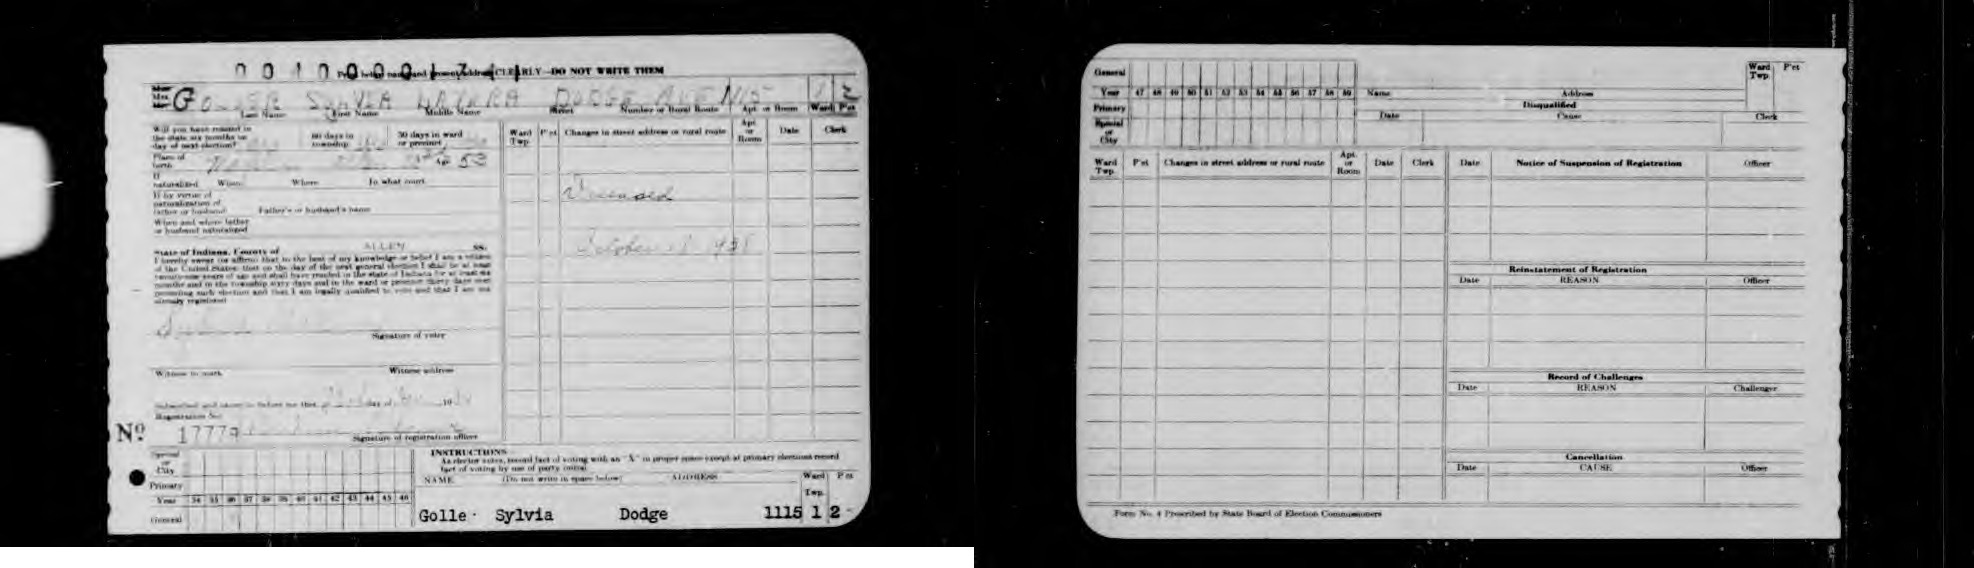 CLEARLY—DO NOT WRITE THEM
SYLVIA DODGE AVE 1115 1 2
Last Name First Name Middle Name Street Number or Rural Route Apt. or Room Ward P'ct
Will you have resided in
the state six months on
day of next election?
60 days in
township
30 days in ward
or precinct
Place of
birth
Age 53
If
naturalized When Where In what court
If by virtue of
naturalization of
father or husband Father's or husband's name
When and where father
or husband naturalized
State of Indiana, County of ALLEN SS.
I hereby swear (or affirm) that to the best of my knowledge or belief I am a citizen
of the United States; that on the day of the next general election I shall be at least
twenty-one years of age and shall have resided in the state of Indiana for at least six
months and in the township sixty days and in the ward or precinct thirty days next
preceding such election and that I am legally qualified to vote and that I am not
already registered
Signature of voter
Witness to mark Witness address
Subscribed and sworn to before me this day of 19
Registration No.
Nº 17779
Signature of registration officer
Ward
Twp.
P'ct
Changes in street address or rural route
Apt.
or
Room
Date
Clerk
Deceased
October 1938
Special
or
City
Primary
Year 34 35 36 37 38 39 40 41 42 43 44 45 46
General
INSTRUCTIONS
As elector votes, record fact of voting with an "X" in proper space except at primary elections record
fact of voting by use of party initial
NAME (Do not write in space below) ADDRESS Ward Twp. P'ct
Golle Sylvia Dodge 1115 1 2
General
Year 47 48 49 50 51 52 53 54 55 56 57 58 59
Primary
Special
or
City
Name Address
Ward
Twp.
P'ct
Disqualified
Date Cause Clerk
Ward
Twp.
P'ct
Changes in street address or rural route
Apt.
or
Room
Date
Clerk
Date Notice of Suspension of Registration Officer
Reinstatement of Registration
Date REASON Officer
Record of Challenges
Date REASON Challenger
Cancellation
Date CAUSE Officer
Form No. 4 Prescribed by State Board of Election Commissioners